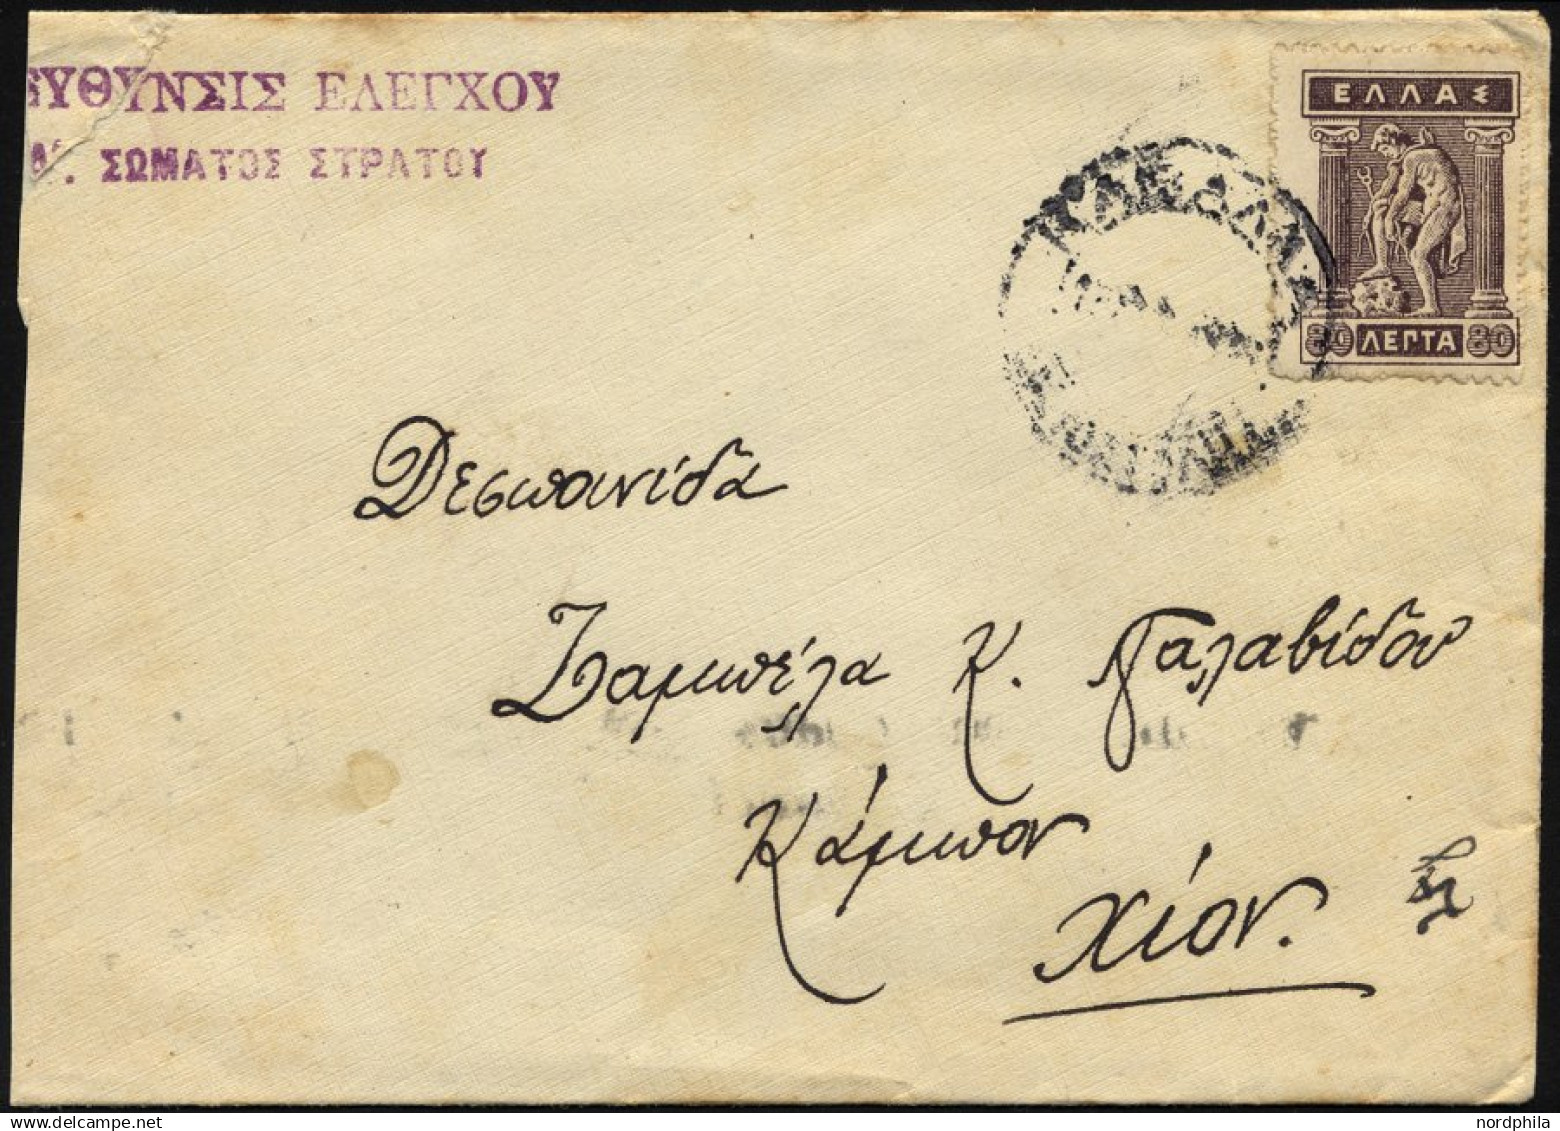 ΕΥΘΥΝΣΙΣ ΕΛΕΓΧΟΥ
ΣΩΜΑΤΟΣ ΣΤΡΑΤΟΥ
ΕΛΛΑΣ
80 ΛΕΠΤΑ 80
Δεσποινίδα
Ζαμπέλα Κ. Γαλαβίδου
Κάμπον
Χίον.
nordphila